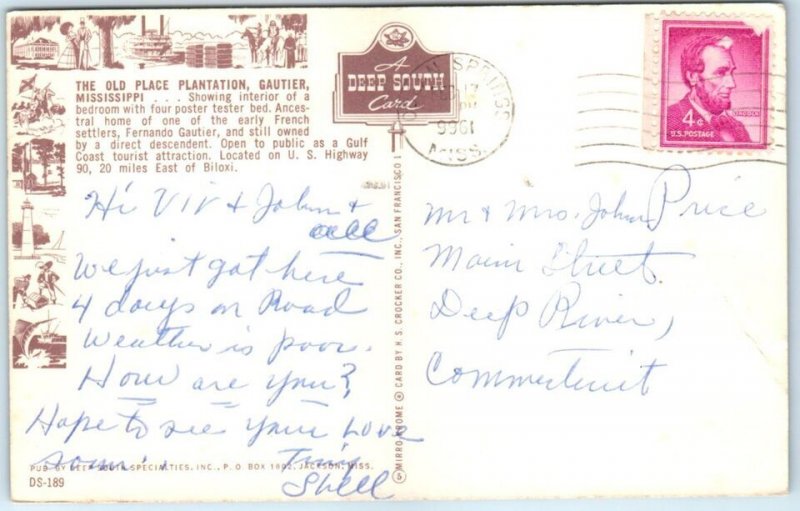 THE OLD PLACE PLANTATION, GAUTIER,
MISSISSIPPI . . . Showing interior of a
bedroom with four poster tester bed. Ances-
tral home of one of the early French
settlers, Fernando Gautier, and still owned
by a direct descendent. Open to public as a Gulf
Coast tourist attraction. Located on U. S. Highway
90, 20 miles East of Biloxi.
A
DEEP SOUTH
Card
SPRINGS
17
MISS.
4¢
LINCOLN
U.S. POSTAGE
Hi Viv & John &
all
We just got here
4 days on Road
Weather is poor.
How are you?
Hope to see you Love
soon.
Shell
Mr & Mrs. John Price
Main Street
Deep River,
Connecticut
MIRRO-KROME ® CARD BY H. S. CROCKER CO., INC., SAN FRANCISCO 1
PUB. BY DEEP SOUTH SPECIALTIES, INC., P. O. BOX 1892, JACKSON, MISS.
DS-189
5